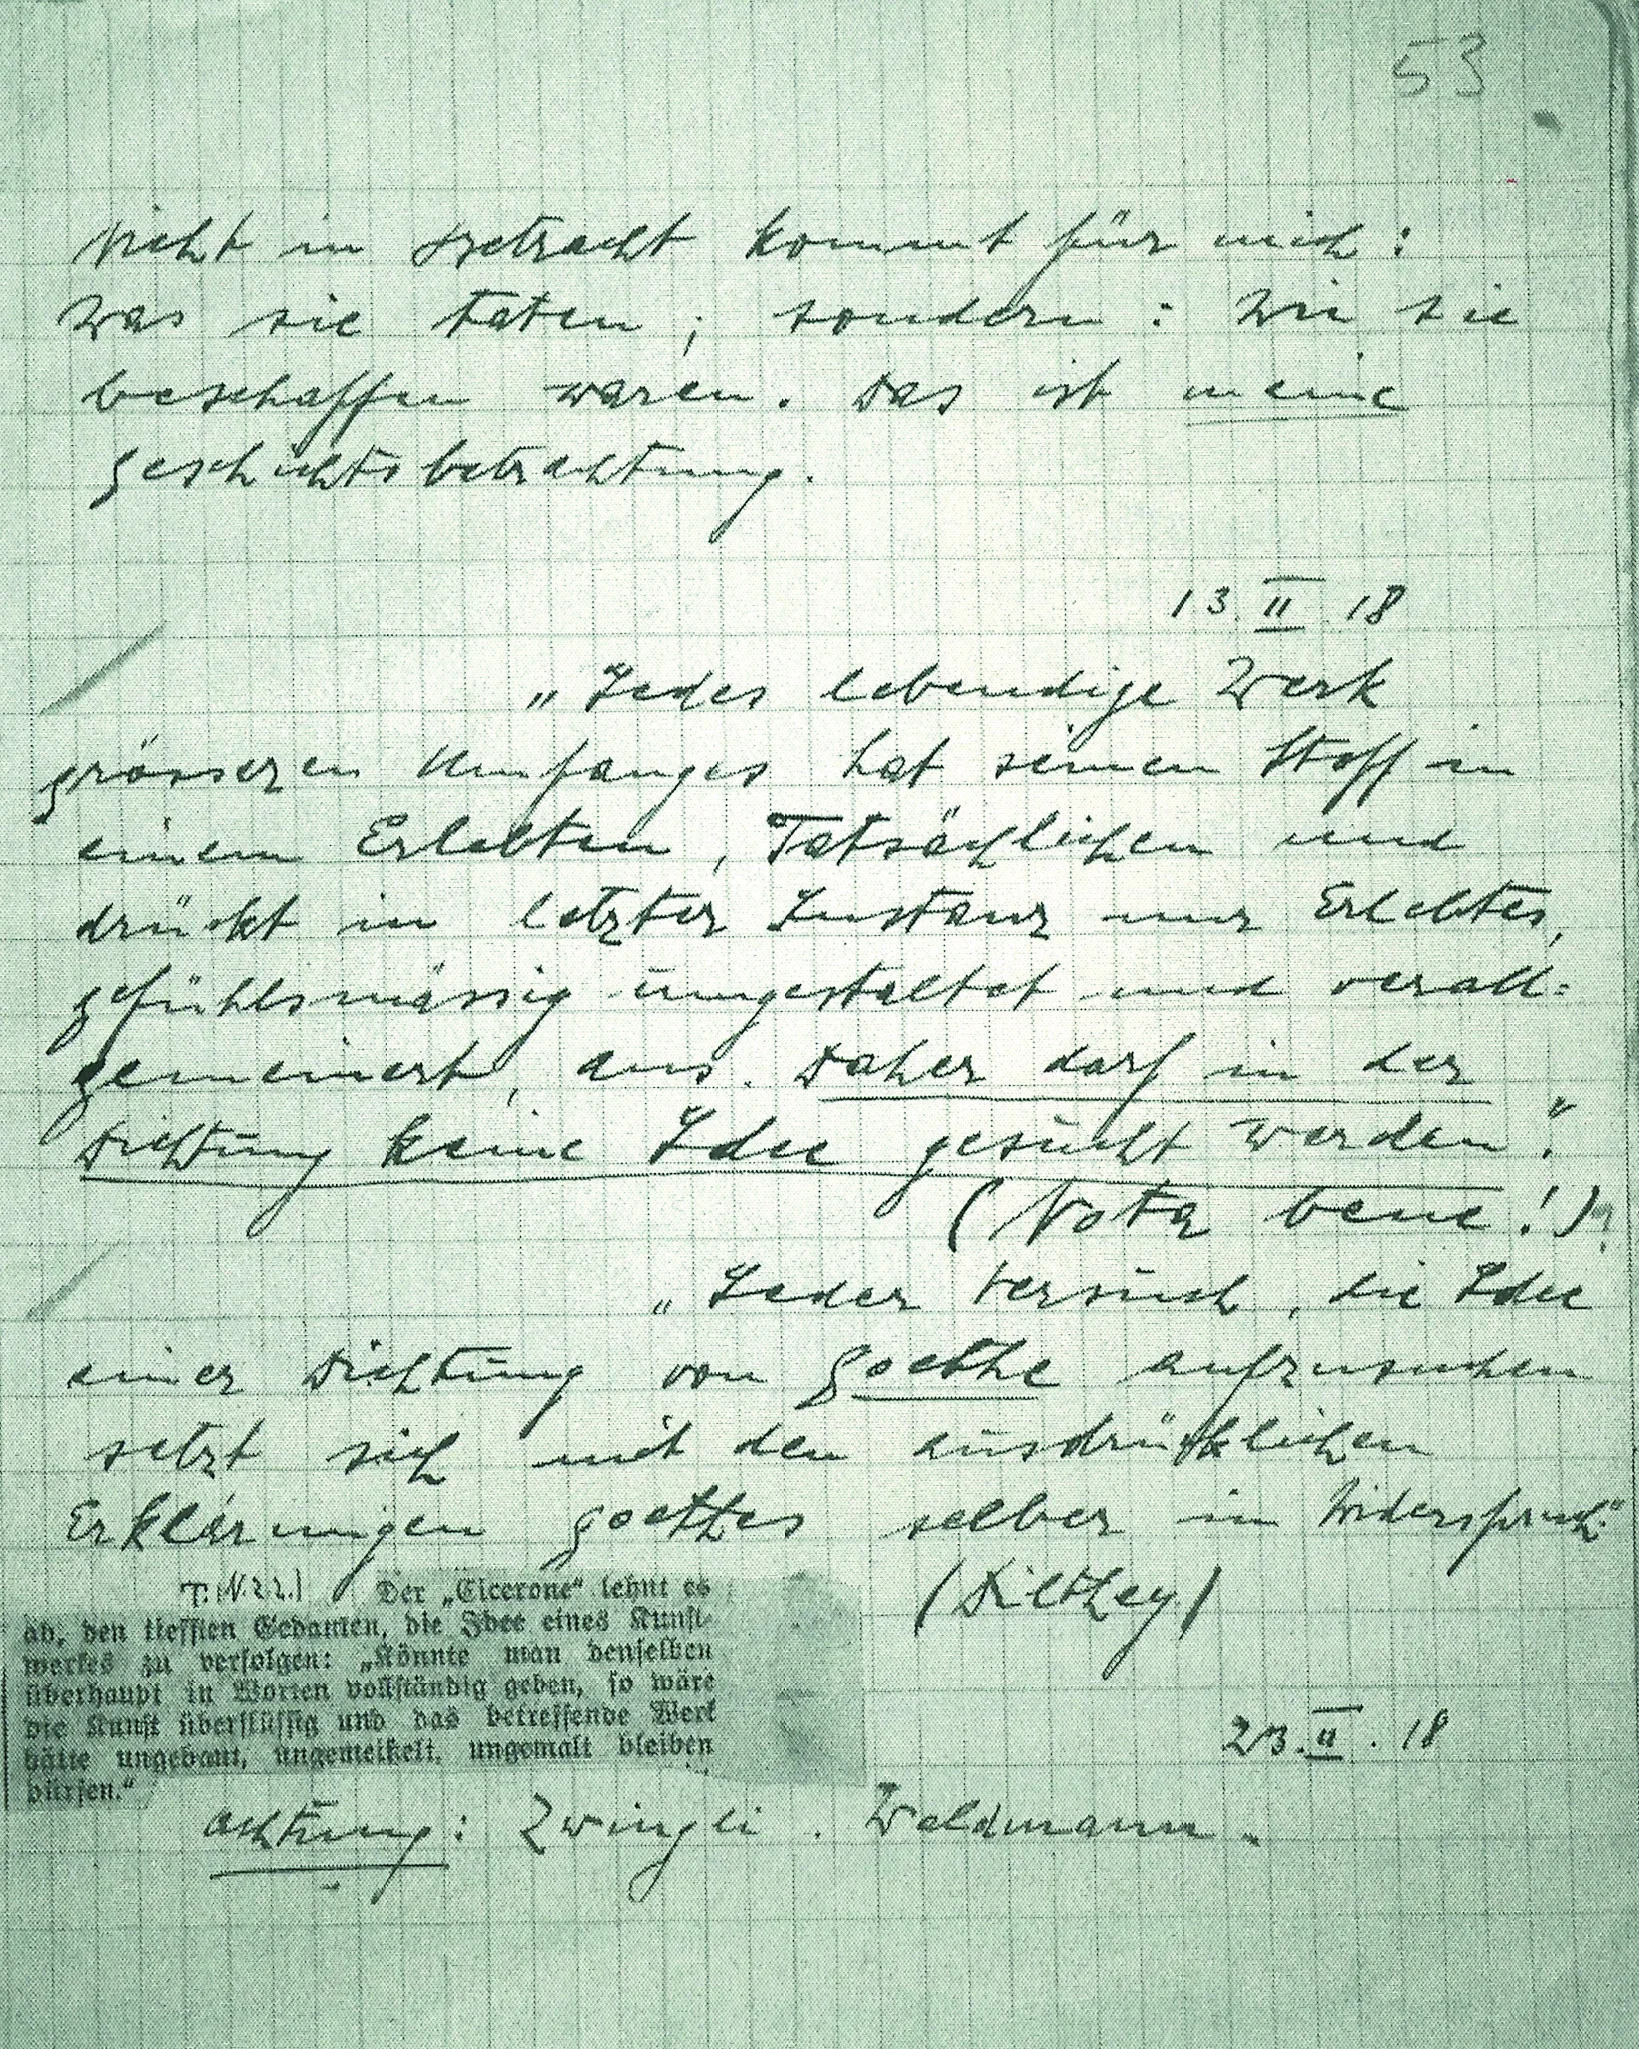 53
Nicht in Betracht kommt für mich:
Was sie taten; sondern: Wie sie
beschaffen waren. Das ist meine
Geschichtsbetrachtung.
13. II. 18
„Jedes lebendige Werk
grösseren Umfanges hat seinen Stoff in
einem Erlebten, Tatsächlichen und
drückt in letzter Instanz nur Erlebtes,
gefühlsmässig umgestaltet und verall=
gemeinert, aus. Daher darf in der
Dichtung keine Idee gesucht werden."
(Nota bene!)
„Jeder Versuch, die Idee
einer Dichtung von Goethe aufzusuchen
setzt sich mit den ausdrücklichen
Erklärungen Goethes selber in Widerspruch."
(Dilthey)
Der „Cicerone“ lehnt es
ab, den tiefsten Gedanken, die Idee eines Kunst-
werkes zu verfolgen: „Könnte man denselben
überhaupt in Worten vollständig geben, so wäre
die Kunst überflüssig und das betreffende Werk
hätte ungebaut, ungemeißelt, ungemalt bleiben
dürfen.“
23. II. 18
Achtung: Zwingli. Waldmann.